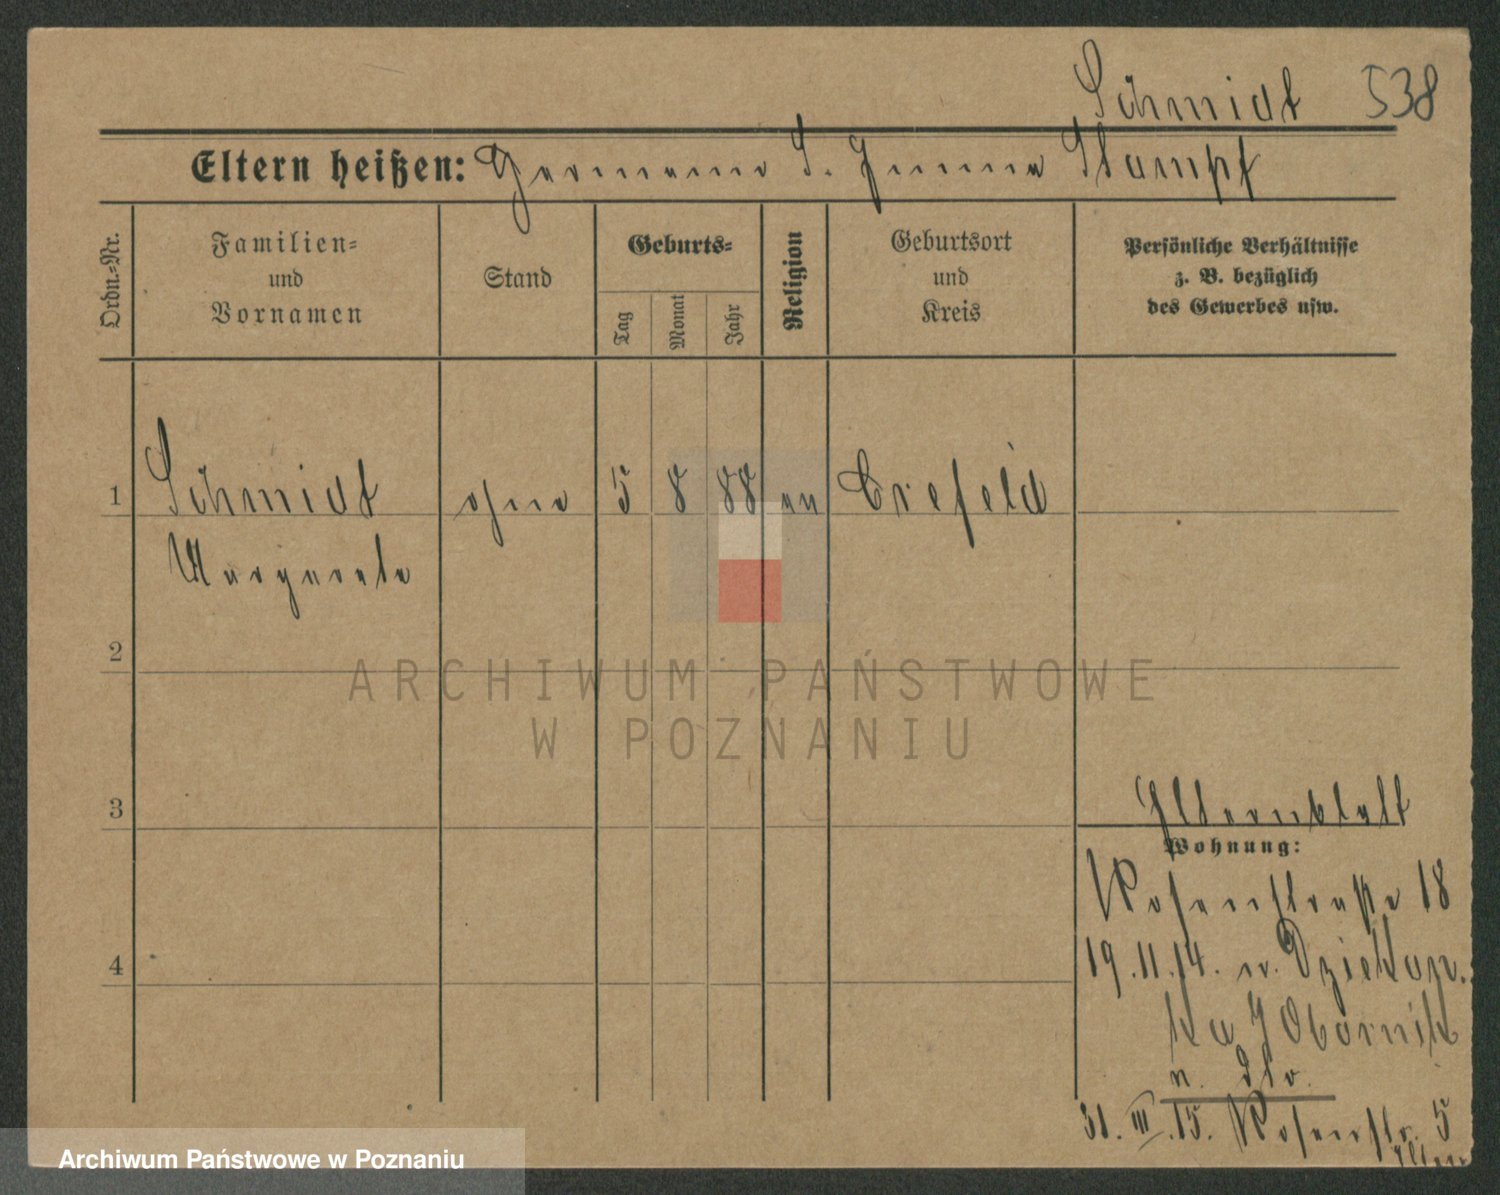 Schmidt 538
Eltern heißen: Hermann S. Emma Stampf
Ordn.=Nr.
Familien=
und
Vornamen
Stand
Geburts=
Tag
Monat
Jahr
Religion
Geburtsort
und
Kreis
Persönliche Verhältnisse
z. B. bezüglich
des Gewerbes usw.
1 Schmidt ohne 5 8 88 ev Crefeld
Margarete
2
ARCHIWUM PAŃSTWOWE
W POZNANIU
3
Elternblatt
Wohnung:
Rosenstraße 18
4
19.11.14. n. Dziekan.
ka Obornik
n. dto.
31.III.15. Rosenstr. 5
Archiwum Państwowe w Poznaniu